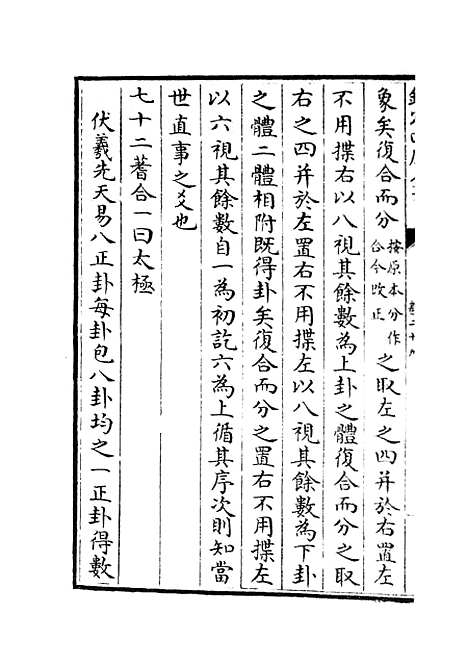 象矣復合而分按原本分作合今改正之取左之四并於右置左
不用揲右以八視其餘數為上卦之體復合而分之取
右之四并於左置右不用揲左以八視其餘數為下卦
之體二體相附既得卦矣復合而分之置右不用揲左
以六視其餘數自一為初訖六為上循其序次則知當
世直事之爻也
七十二蓍合一曰太極
伏羲先天易八正卦每卦包八卦均之一正卦得數